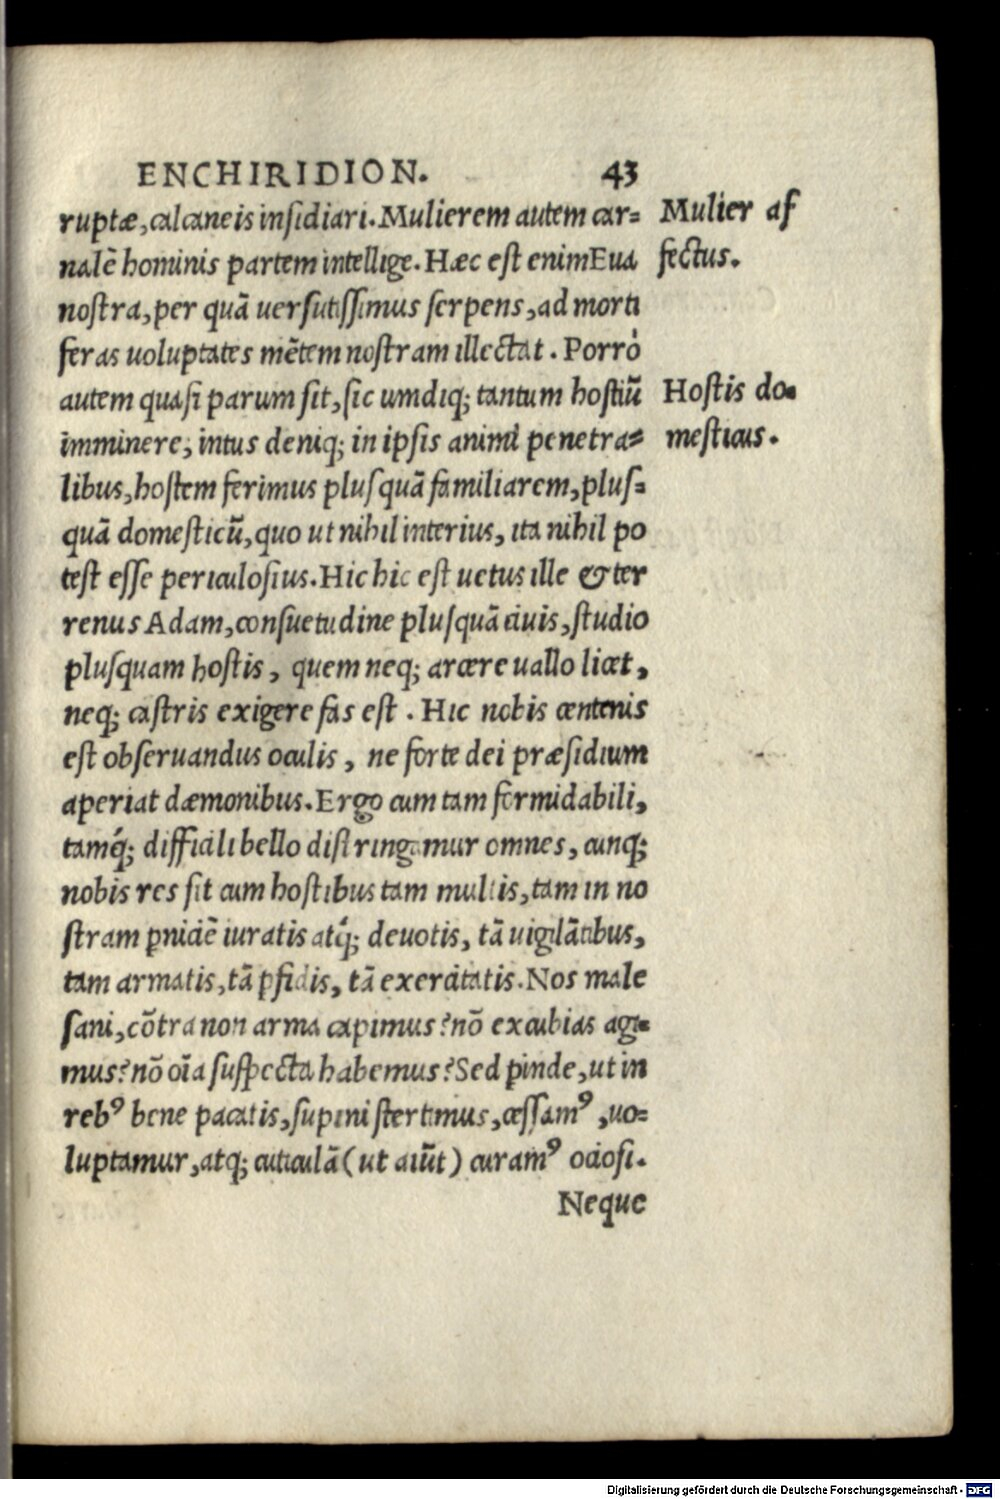 ENCHIRIDION. 43
ruptæ, calcaneis insidiari. Mulierem autem car=
nalē hominis partem intellige. Hæc est enim Eua
nostra, per quā uersutissimus serpens, ad morti
feras uoluptates mētem nostram illectat. Porrò
autem quasi parum sit, sic undiq; tantum hostiū
imminere, intus deniq; in ipsis animi penetra=
libus, hostem ferimus plusquā familiarem, plus=
quā domesticū, quo ut nihil interius, ita nihil po
test esse periculosius. Hic hic est uetus ille & ter
renus Adam, consuetudine plusquā ciuis, studio
plusquam hostis, quem neq; arcere uallo licet,
neq; castris exigere fas est. Hic nobis centenis
est obseruandus oculis, ne forte dei præsidium
aperiat dæmonibus. Ergo cum tam formidabili,
tamq́; difficili bello distringamur omnes, cunq;
nobis res sit cum hostibus tam multis, tam in no
stram ꝑniciē iuratis atq́; deuotis, tā uigilātibus,
tam armatis, tā ꝑfidis, tā exercitatis. Nos male
sani, cōtra non arma capimus? nō excubias agi=
mus? nō oīa suspecta habemus? Sed ꝑinde, ut in
rebꝰ bene pacatis, supini stertimus, cessamꝰ, uo=
luptamur, atq; cuticulā (ut aiūt) curamꝰ ociosi.
Neque
Mulier af
fectus.
Hostis do=
mesticus.
Digitalisierung gefördert durch die Deutsche Forschungsgemeinschaft - DFG